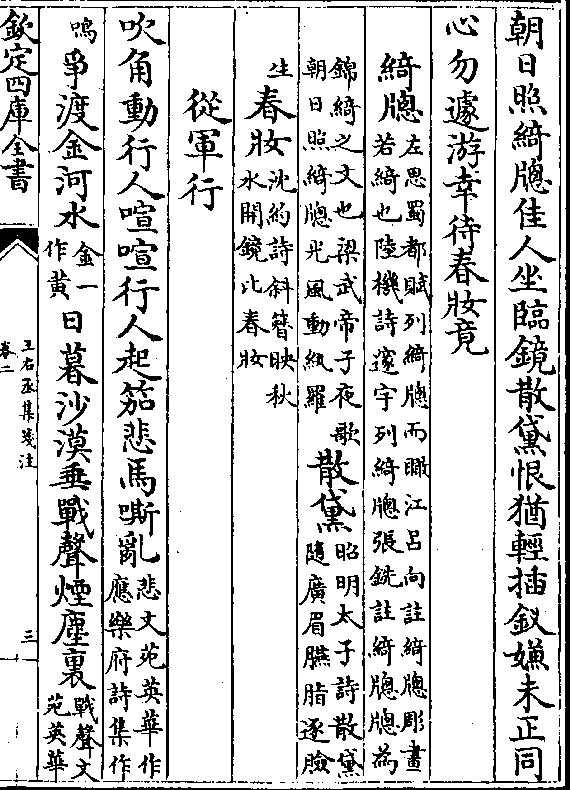 朝日照綺牕佳人坐臨鏡散黛恨猶輕插釵嫌未正同
心勿遽游幸待春妝竟
綺牕左思蜀都賦列綺牕而瞰江呂向註綺牕彫畫
若綺也陸機詩邃宇列綺牕張銑註綺牕牕為
錦綺之文也梁武帝子夜歌
朝日照綺牕光風動紈羅
散黛昭明太子詩散黛
隨廣眉臙脂逐臉
生
春妝沈約詩斜簪映秋
水開鏡比春妝
從軍行
吹角動行人喧喧行人起笳悲馬嘶亂悲文苑英華作
應樂府詩集作
鳴
爭渡金河水金一
作黄
日暮沙漠垂戰聲煙塵裏戰聲文
苑英華
欽定四庫全書
王右丞集箋注
卷二
三